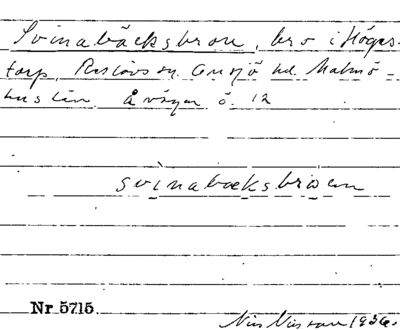 Svinabäcksbron, bro i Högas-
torp, Risløvs sn. Onsjö hd. Malmö-
hus län. Å vägen ö. 12
svinabæksbrøen
Nr 5715
Nils Nilsson 1936.